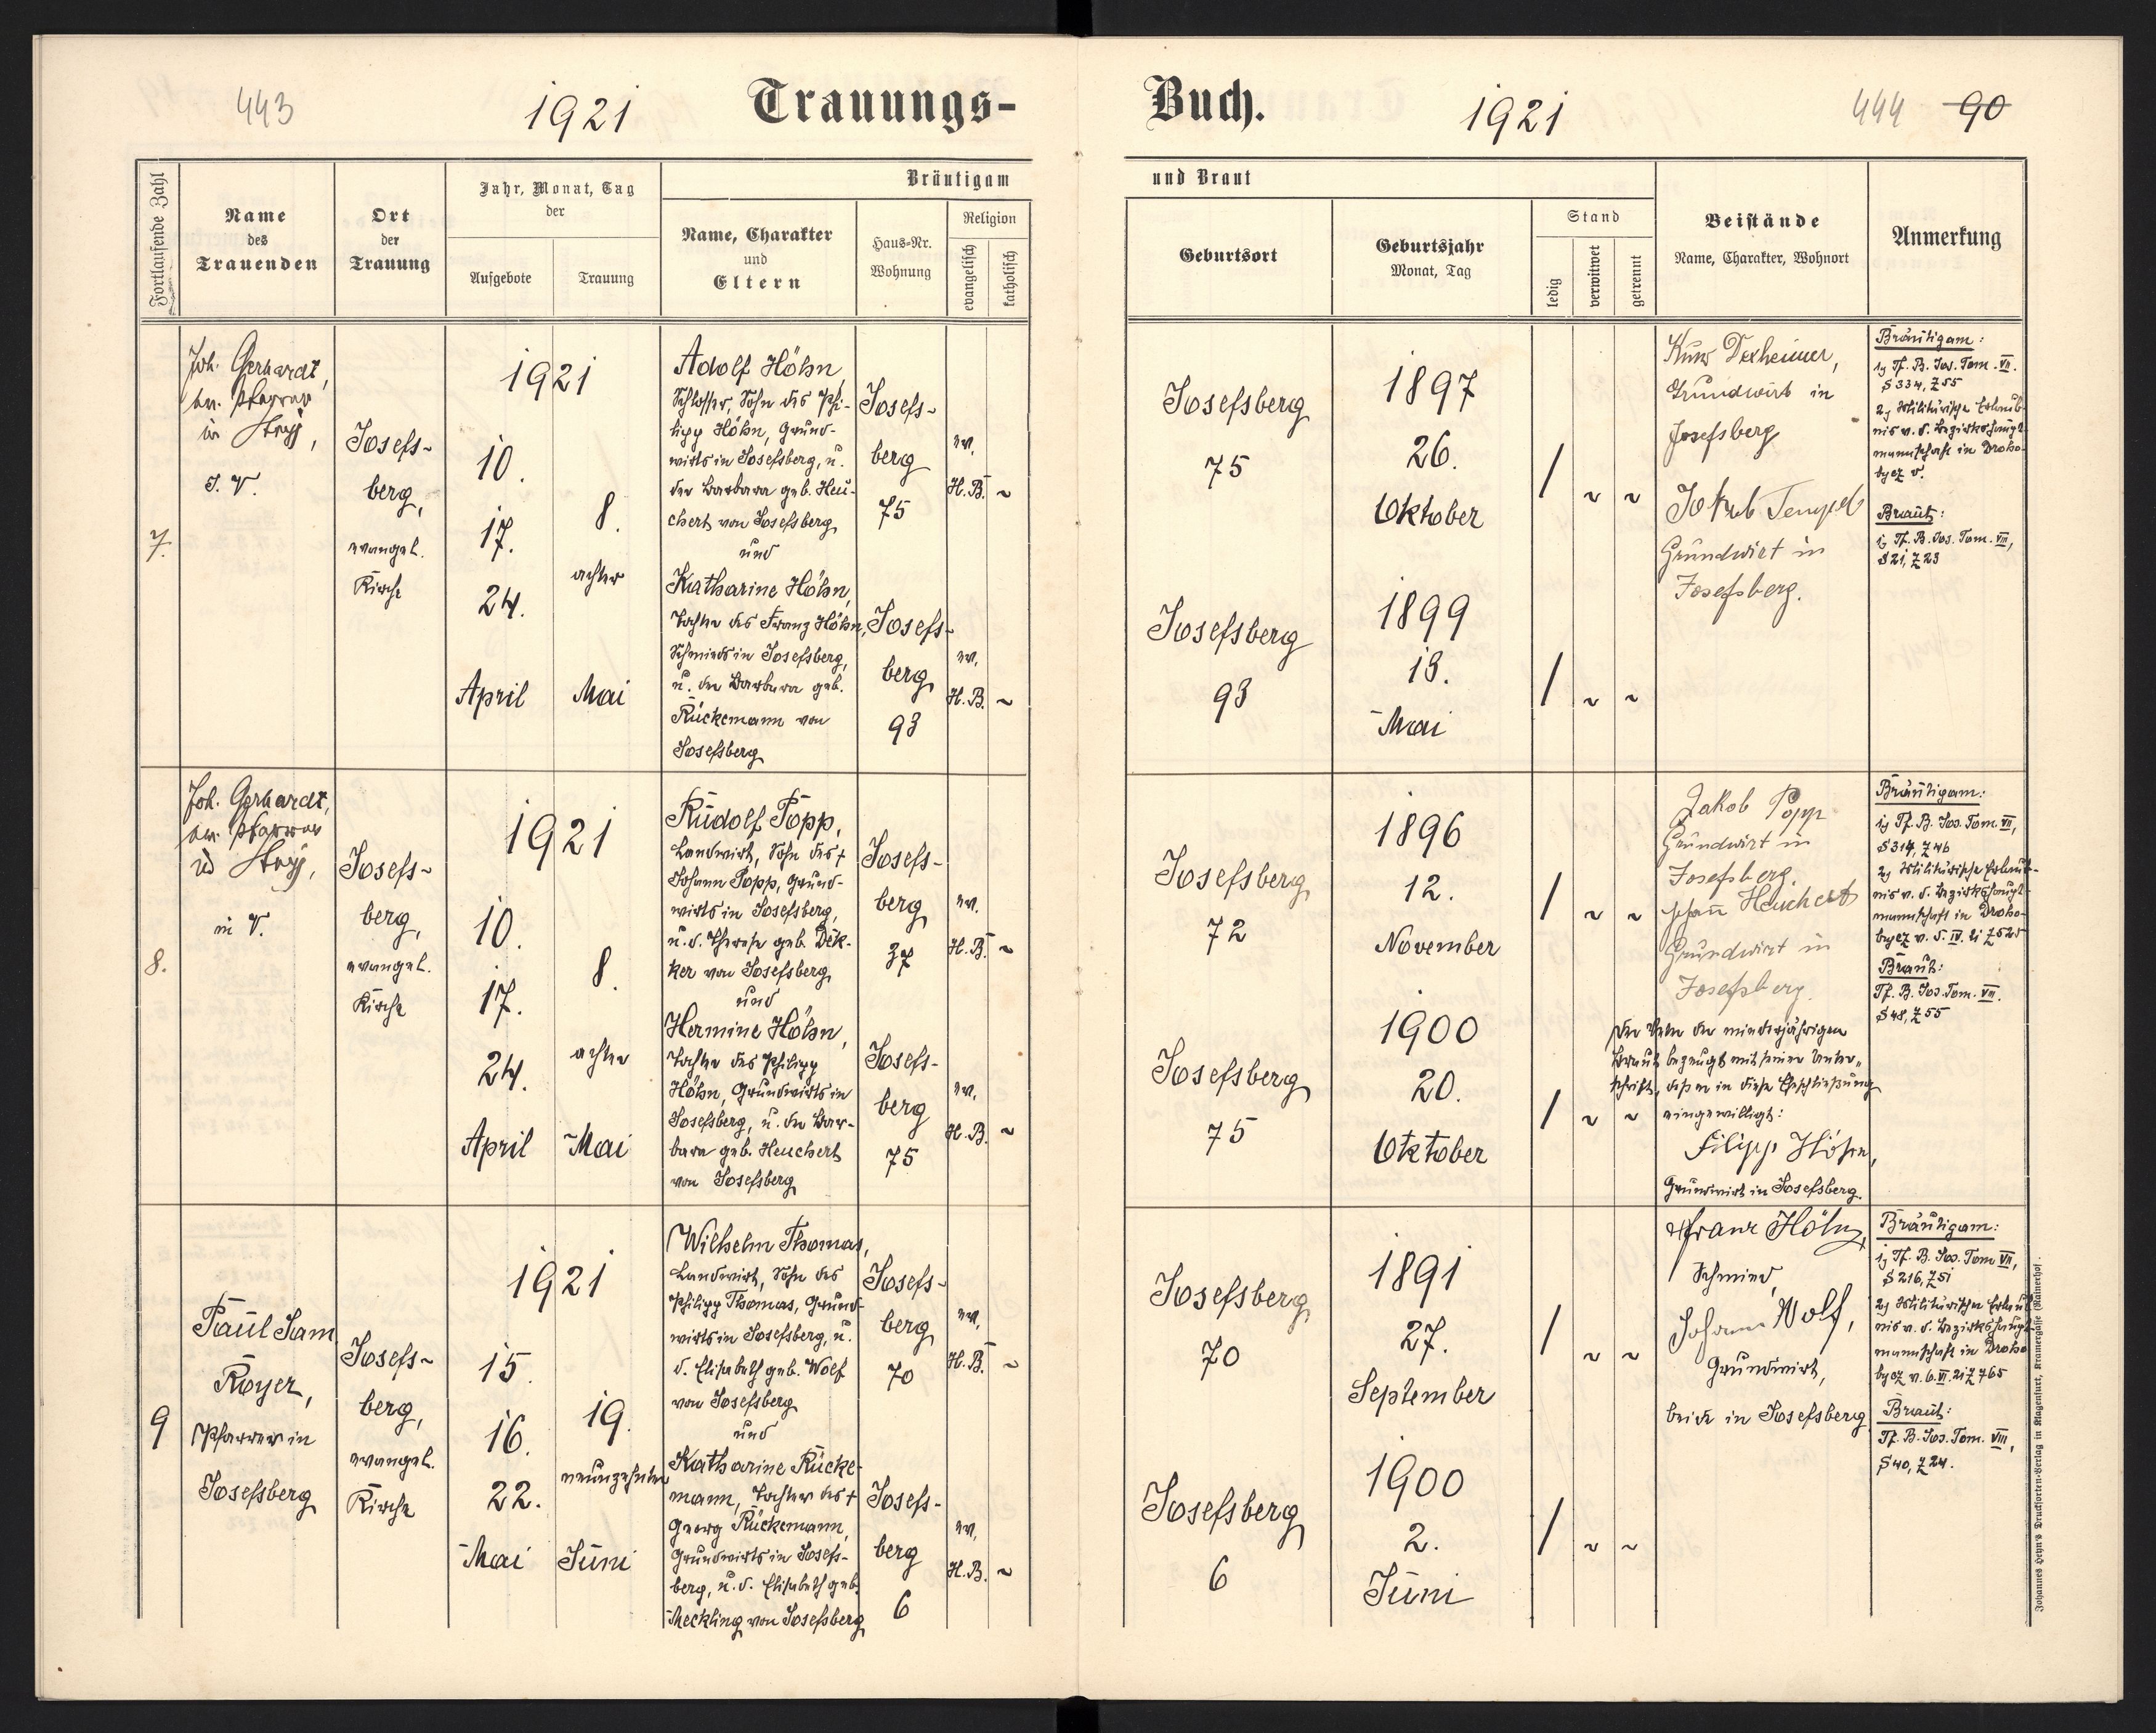 443
1921
Trauungs-
Buch.
1921
444 90
Fortlaufende Zahl
Name
des
Trauenden
Ort
der
Trauung
Jahr, Monat, Tag
der
Aufgebote
Trauung
Bräutigam
Name, Charakter
und
Eltern
Haus-Nr.
Wohnung
Religion
evangelisch
katholisch
und Braut
Geburtsort
Geburtsjahr
Monat, Tag
Stand
ledig
verwitwet
getrennt
Beistände
Name, Charakter, Wohnort
Anmerkung
7.
Joh. Gerhardt,
ev. Pfarrer
in Stryj,
i. V.
Josefs-
berg,
evangel.
Kirche
1921
10.
17.
24.
April
8.
achter
Mai
Adolf Höhn,
Schlosser, Sohn des Phi-
lipp Höhn, Grund-
wirts in Josefsberg, u.
der Barbara geb. Heu-
chert von Josefsberg
und
Katharine Höhn,
Tochter des Franz Höhn,
Schmieds in Josefsberg,
u. der Barbara geb.
Rückemann von
Josefsberg
Josefs-
berg
75
Josefs-
berg
93
ev.
H.B. ~
ev.
H.B. ~
Josefsberg
75
Josefsberg
93
1897
26.
Oktober
1899
13.
Mai
/ ~ ~
/ ~ ~
Dexheimer,
Grundwirt in
Josefsberg
Jakob Tempel
Grundwirt in
Josefsberg.
Bräutigam:
1) Tf. B. Jos. Tom. VII.
§ 334, Z 55
2) Militärische Erlaub-
nis v. d. Bezirkshaupt-
mannschaft in Droho-
bycz v.
Braut:
1) Tf. B. Jos. Tom. VIII,
§ 21, Z 23
8.
Joh. Gerhardt,
ev. Pfarrer
in Stryj,
in V.
Josefs-
berg,
evangel.
Kirche
1921
10.
17.
24.
April
8.
achter
Mai
Rudolf Popp,
Landwirt, Sohn des †
Johann Popp, Grund-
wirts in Josefsberg,
u. d. Therese geb. Dek-
ker von Josefsberg
und
Hermine Höhn,
Tochter des Philipp
Höhn, Grundwirts in
Josefsberg, u. der Bar-
bara geb. Heuchert
von Josefsberg
Josefs-
berg
37
Josefs-
berg
75
ev.
H.B. ~
ev.
H.B. ~
Josefsberg
72
Josefsberg
75
1896
12.
November
1900
20.
Oktober
/ ~ ~
/ ~ ~
Jakob Popp
Grundwirt in
Josefsberg.
Heuchert
Grundwirt in
Josefsberg.
Der Vater der minderjährigen
Braut bezeugt mit seiner Unter-
schrift, daß er in diese Eheschließung
eingewilligt:
Filipp Höhn,
Grundwirt in Josefsberg.
Bräutigam:
1) Tf. B. Jos. Tom. VII,
§ 314, Z 46
2) Militärische Erlaub-
nis v. d. Bezirkshaupt-
mannschaft in Droho-
bycz v. 5. IV. 21 Z 525
Braut:
Tf. B. Jos. Tom. VIII.
§ 48, Z 55
9
Paul Sam
Royer,
Pfarrer in
Josefsberg
Josefs-
berg,
evangel.
Kirche
1921
15.
16.
22.
Mai
19.
neunzehnter
Juni
Wilhelm Thomas,
Landwirt, Sohn des
Philipp Thomas, Grund-
wirts in Josefsberg, u.
d. Elisabeth geb. Wolf
von Josefsberg
und
Katharine Rücke-
mann, Tochter des †
Georg Rückemann,
Grundwirts in Josefs-
berg, u. d. Elisabeth geb.
Meckling von Josefsberg
Josefs-
berg
70
Josefs-
berg
6
ev.
H.B. ~
ev.
H.B. ~
Josefsberg
70
Josefsberg
6
1891
27.
September
1900
2.
Juni
/ ~ ~
/ ~ ~
Franz Höhn,
Schmied,
Johann Wolf,
Grundwirt,
beide in Josefsberg
Bräutigam:
1) Tf. B. Jos. Tom VII,
§ 216, Z 51
2) Militärische Erlaub-
nis v. d. Bezirkshaupt-
mannschaft in Droho-
bycz v. 6. VI. 21 Z 765
Braut:
Tf. B. Jos. Tom. VIII,
§ 40, Z 24.
Johannes Heyn's Drucksorten-Verlag in Klagenfurt, Kramergasse (Rainerhof.